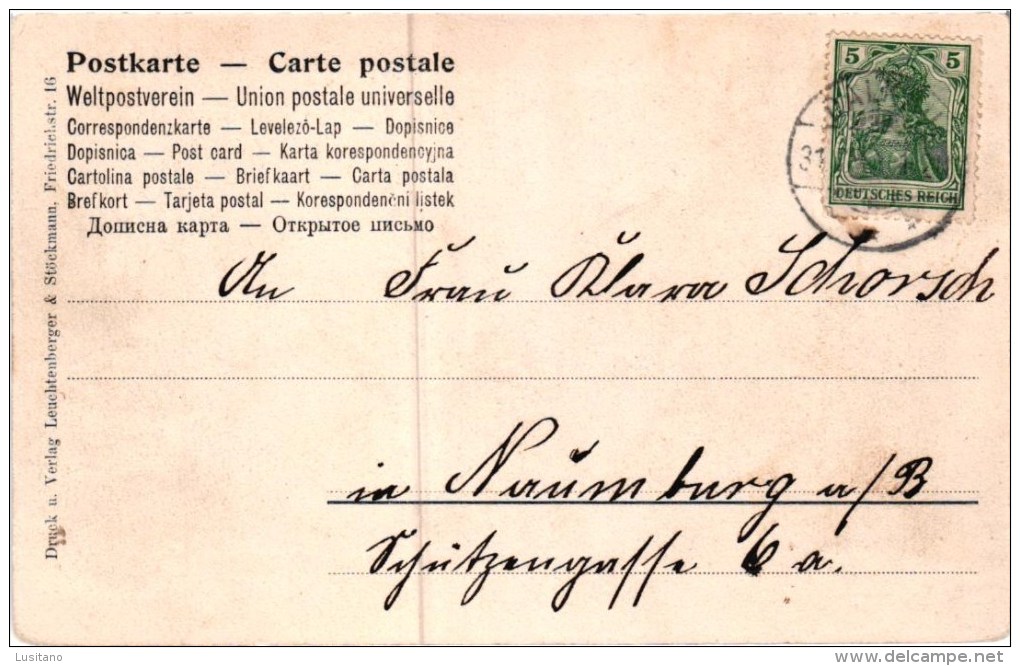 Postkarte — Carte postale
Weltpostverein — Union postale universelle
Correspondenzkarte — Levelező-Lap — Dopisnice
Dopisnica — Post card — Karta korespondencyjna
Cartolina postale — Briefkaart — Carta postala
Brefkort — Tarjeta postal — Korespondenčni listek
Дописна карта — Открытое письмо
Druck u. Verlag Leuchtenberger & Stöckmann, Friedrichstr. 16
5 5
DEUTSCHES REICH
31
An Frau Klara Schorsch
in Naumburg a/B
Schützengasse 6 a.
Lusitano
delcampe.net